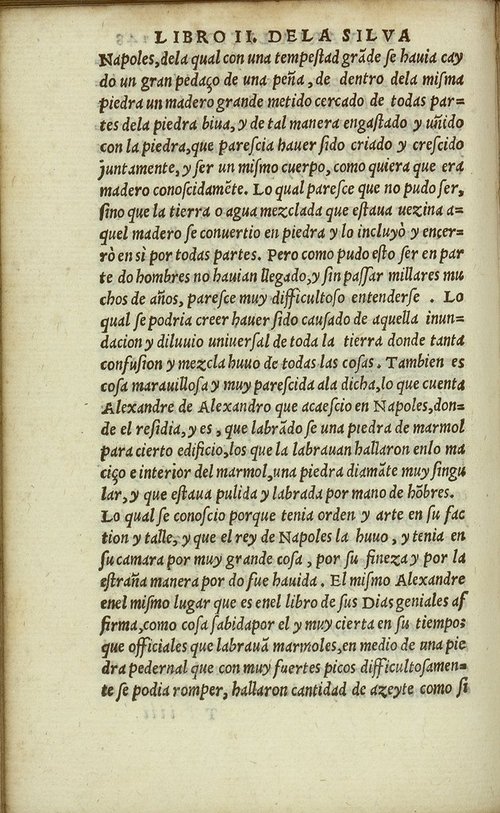 LIBRO II. DELA SILVA
Napoles,dela qual con una tempeſtad grãde ſe hauia cay
do un gran pedaço de una peña, de dentro dela miſma
piedra un madero grande metido cercado de todas par=
tes dela piedra biua, y de tal manera engaſtado y uñido
con la piedra,que pareſcia hauer ſido criado y creſcido
juntamente, y ſer un miſmo cuerpo, como quiera que era
madero conoſcidamẽte. Lo qual pareſce que no pudo ſer,
ſino que la tierra o agua mezclada que eſtaua uezina a=
quel madero ſe conuertio en piedra y lo incluyò y encer=
rò en sì por todas partes. Pero como pudo eſto ſer en par
te do hombres no hauian llegado,y ſin paſſar millares mu
chos de años, pareſce muy difficultoſo entenderſe . Lo
qual ſe podria creer hauer ſido cauſado de aquella inun=
dacion y diluuio uniuerſal de toda la tierra donde tanta
confuſion y mezcla huuo de todas las coſas. Tambien es
coſa marauilloſa y muy pareſcida ala dicha,lo que cuenta
Alexandre de Alexandro que acaeſcio en Napoles,don=
de el reſidia, y es , que labrãdo ſe una piedra de marmol
para cierto edificio,los que la labrauan hallaron enlo ma
ciço e interior del marmol,una piedra diamãte muy ſingu
lar, y que eſtaua pulida y labrada por mano de hõbres.
Lo qual ſe conoſcio porque tenia orden y arte en ſu fac
tion y talle, y que el rey de Napoles la huuo , y tenia en
ſu camara por muy grande coſa , por ſu fineza y por la
eſtraña manera por do fue hauida . El miſmo Alexandre
enel miſmo lugar que es enel libro de ſus Dias geniales af
firma,como coſa ſabida por el y muy cierta en ſu tiempo:
que officiales que labrauã marmoles,en medio de una pie
dra pedernal que con muy fuertes picos difficultoſamen=
te ſe podia romper, hallaron cantidad de azeyte como ſi